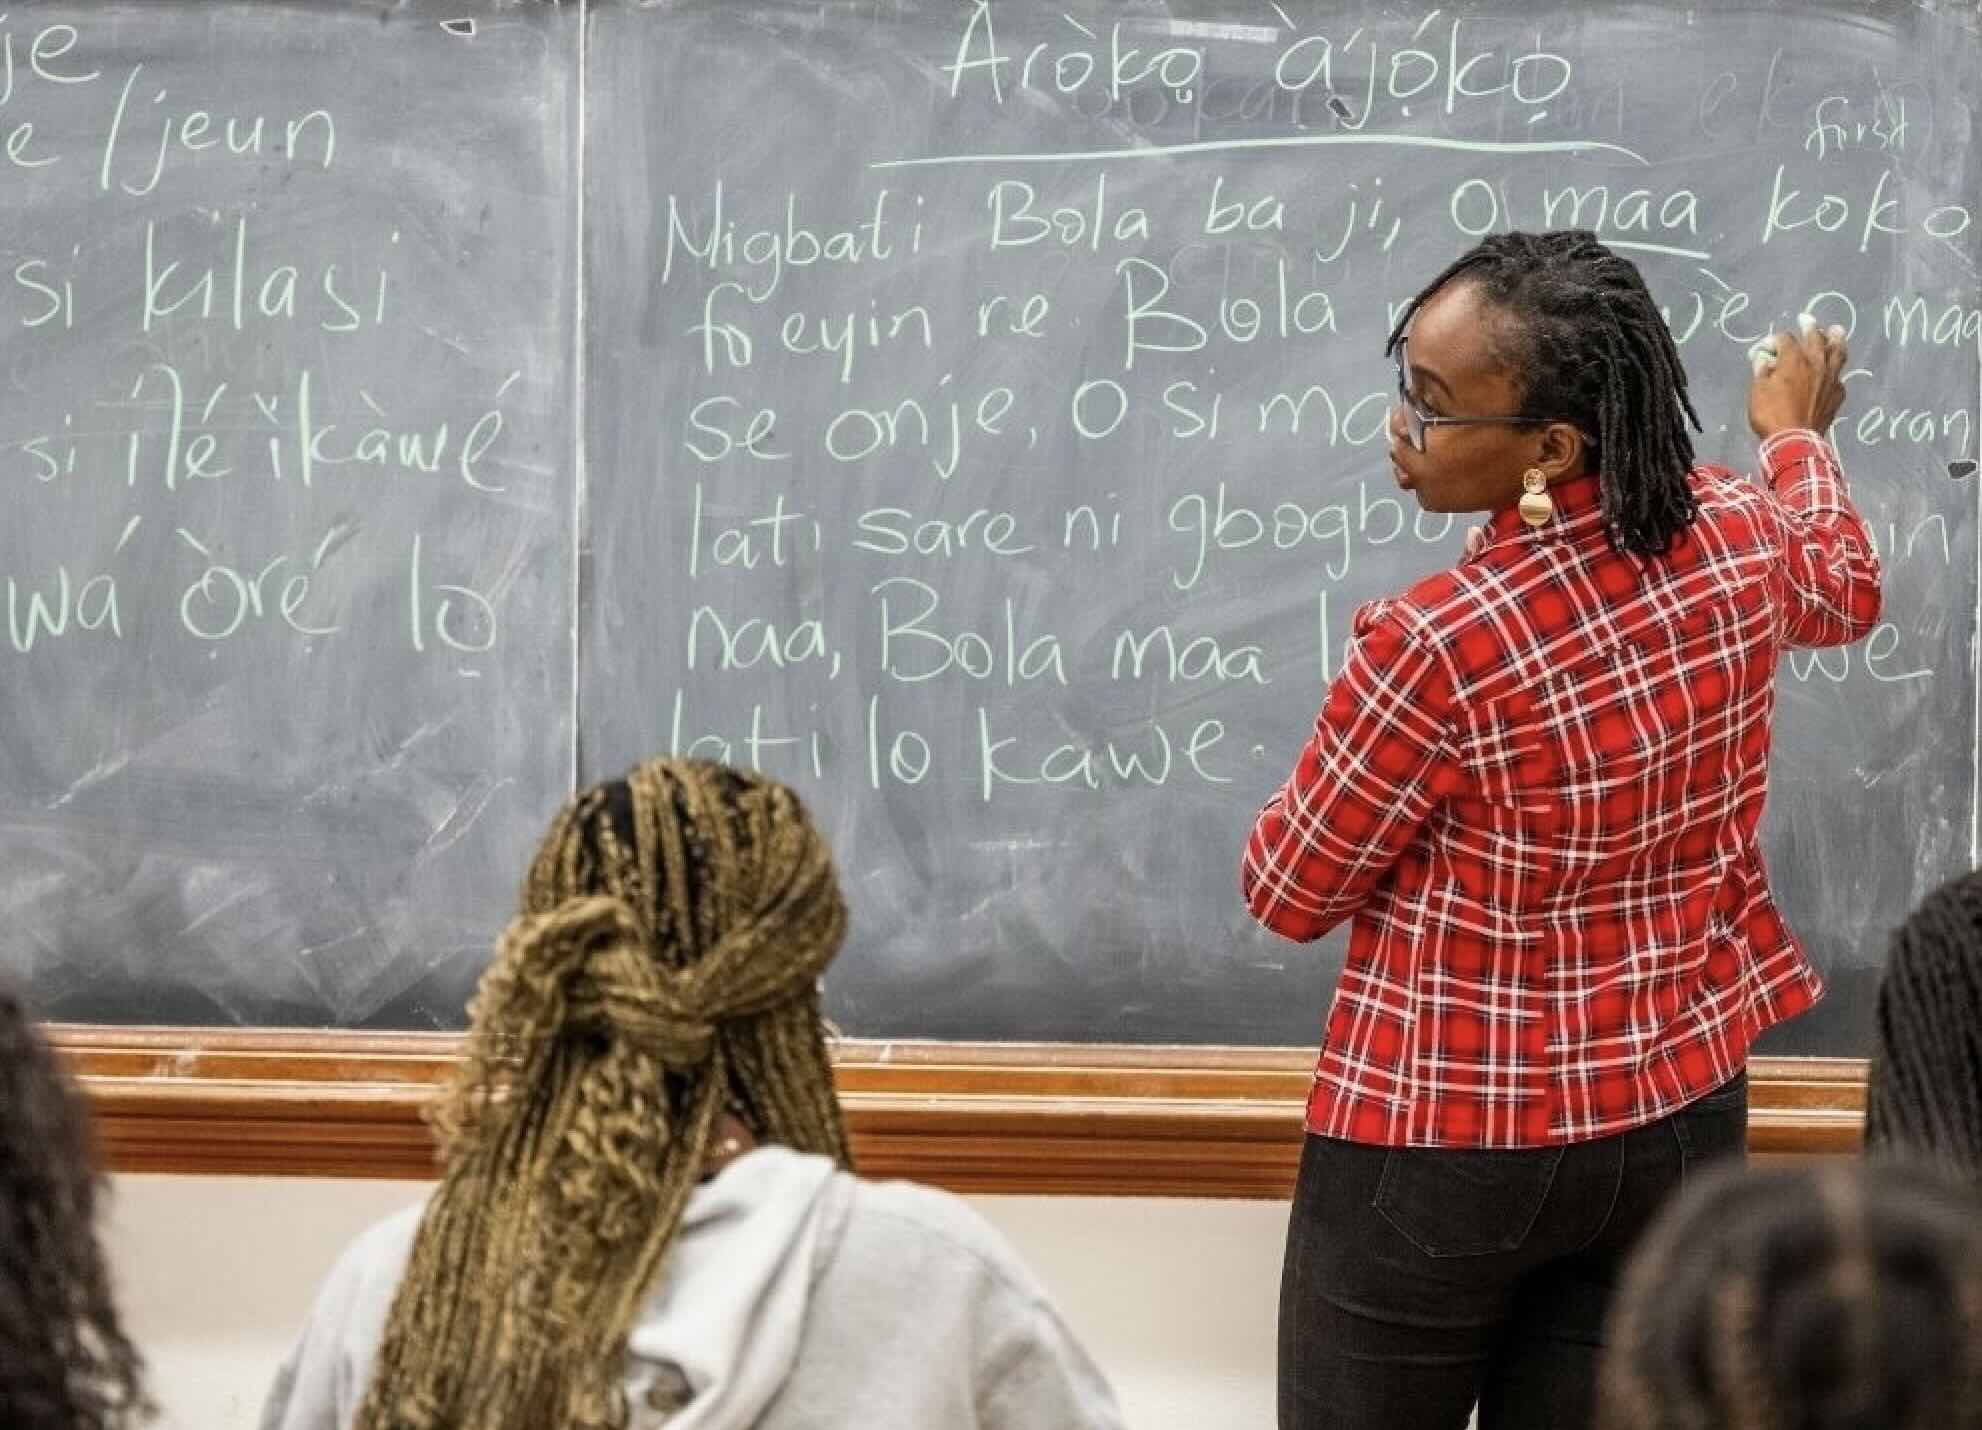 je
e /jeun
si kilasi
si ilé ìkàwé
wá òré lọ
Àròkọ àjọ́kọ
first
Nigbati Bola ba ji, o maa koko
fo eyin re. Bola o maa
se onje, o si feran
lati sare ni
naa, Bola maa
lati lo kawe.